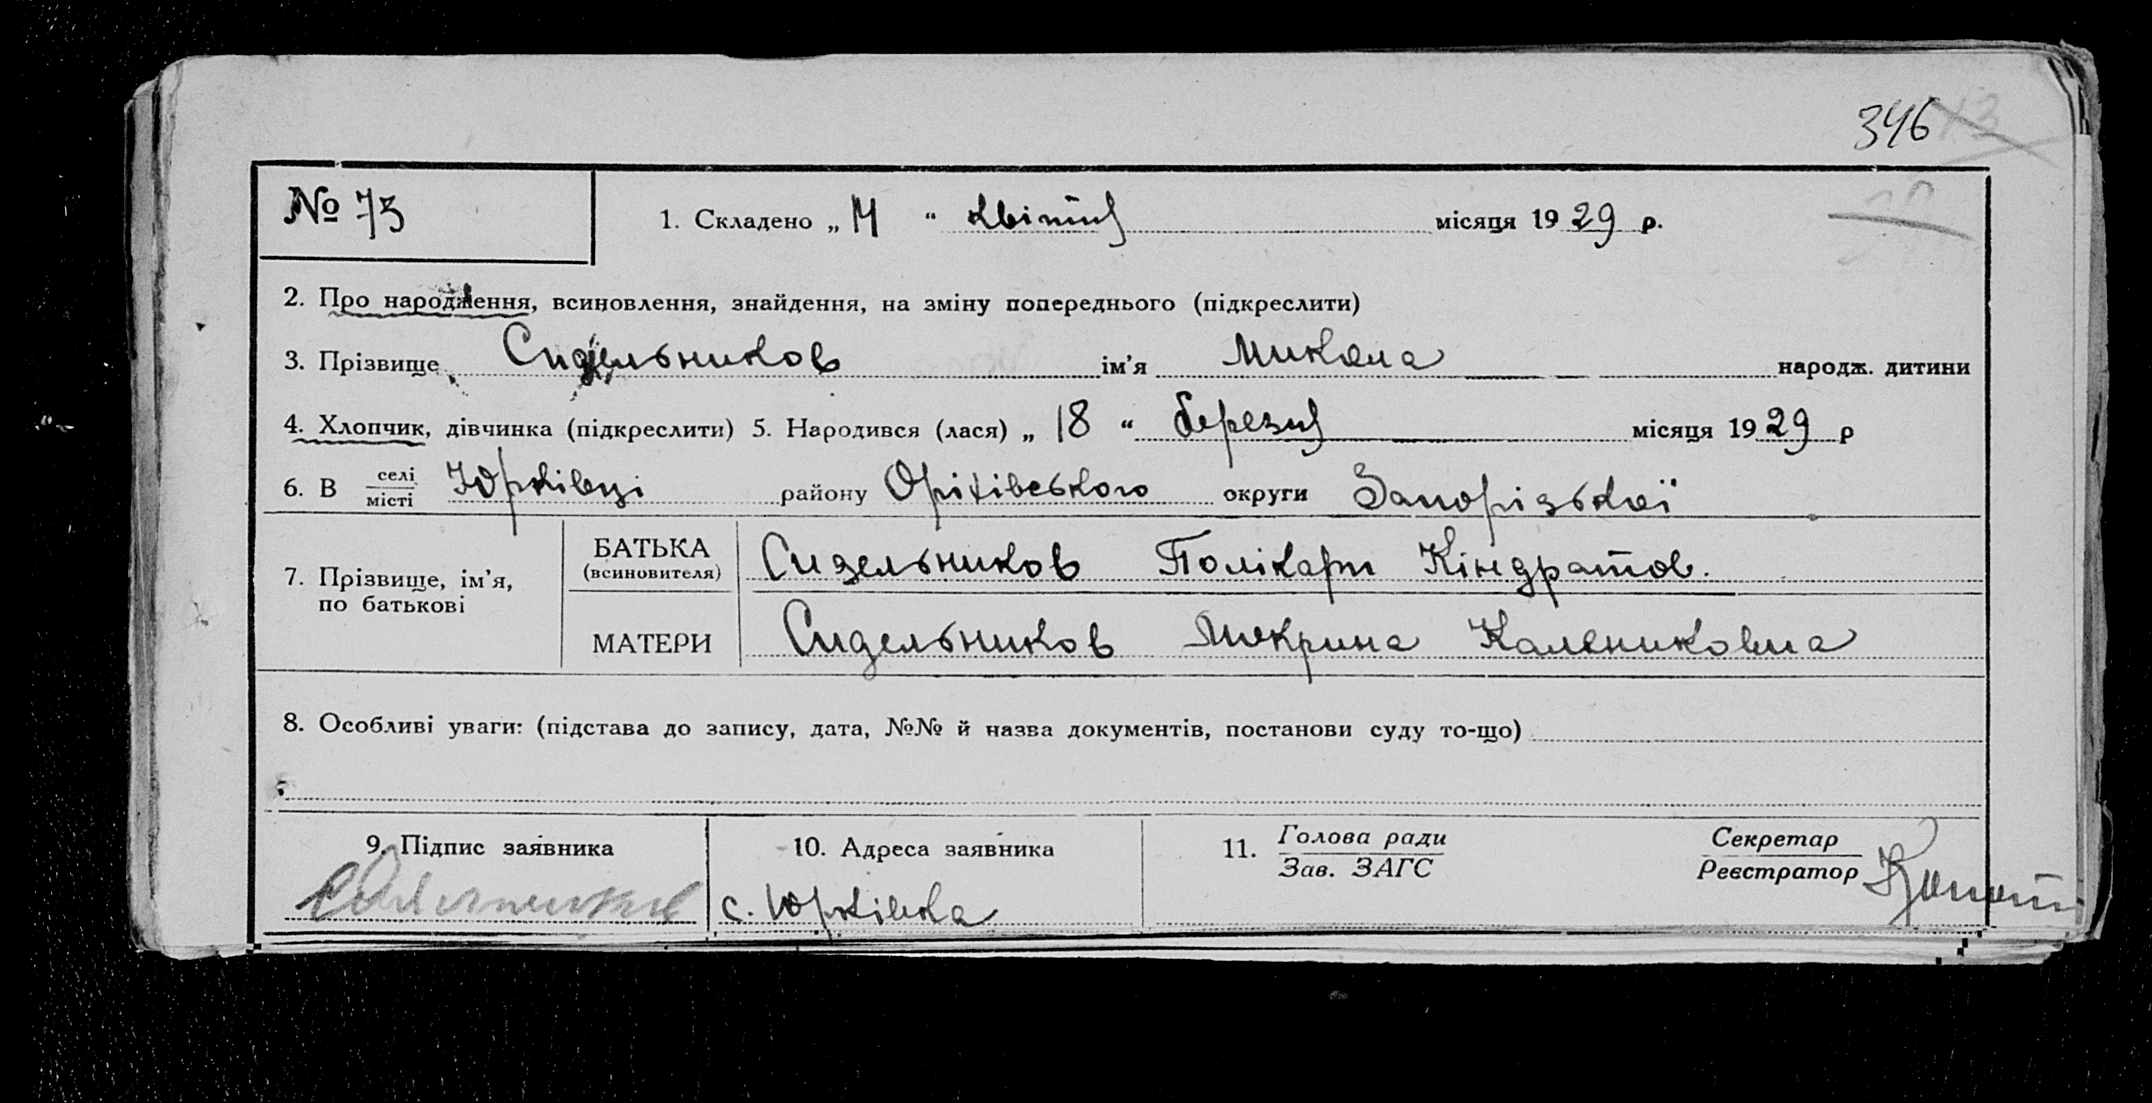 346
№ 73
1. Складено „14“ квітня місяця 1929 р.
2. Про народження, всиновлення, знайдення, на зміну попереднього (підкреслити)
3. Прізвище Сидельников ім’я Микола народж. дитини
4. Хлопчик, дівчинка (підкреслити) 5. Народився (лася) „18“ березня місяця 1929 р
6. В селі місті Юрківці району Оріхівського округи Запорізької
7. Прізвище, ім’я, по батькові
БАТЬКА (всиновителя) Сидельников Полікарп Кіндратов.
МАТЕРИ Сидельников Мокрина Калениковна
8. Особливі уваги: (підстава до запису, дата, №№ й назва документів, постанови суду то-що)
9. Підпис заявника
10. Адреса заявника
с. Юрківка
11. Голова ради
Зав. ЗАГС
Секретар
Реєстратор